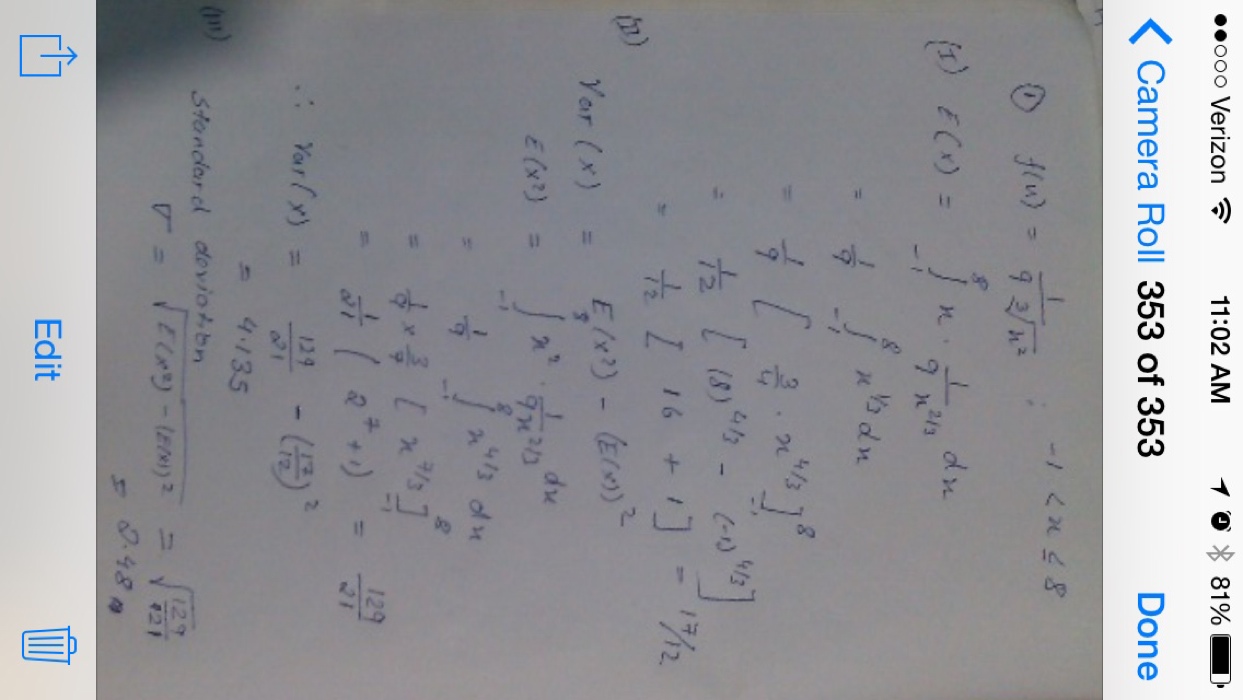 ●●○○○ Verizon 11:02 AM 81%
Camera Roll 353 of 353 Done
① f(x) = 1/(9 ∛x²) ; -1 < x ≤ 8
(I) E(x) = ₋₁∫⁸ x · 1/(9 x^(2/3)) dx
= 1/9 ₋₁∫⁸ x^(1/3) dx
= 1/9 [ 3/4 · x^(4/3) ]₋₁⁸
= 1/12 [ (8)^(4/3) - (-1)^(4/3) ]
= 1/12 [ 16 + 1 ] = 17/12
(II)
Var (x) = E(x²) - (E(x))²
E(x²) = ₋₁∫⁸ x² · 1/(9x^(2/3)) dx
= 1/9 ₋₁∫⁸ x^(4/3) dx
= 1/9 × 3/7 [ x^(7/3) ]₋₁⁸
= 1/21 ( 2⁷ + 1 ) = 129/21
∴ Var(x) = 129/21 - (17/12)²
= 4.135
(III)
Standard deviation
σ = √(E(x²) - (E(x))²) = √(129/21)
= 2.48
Edit